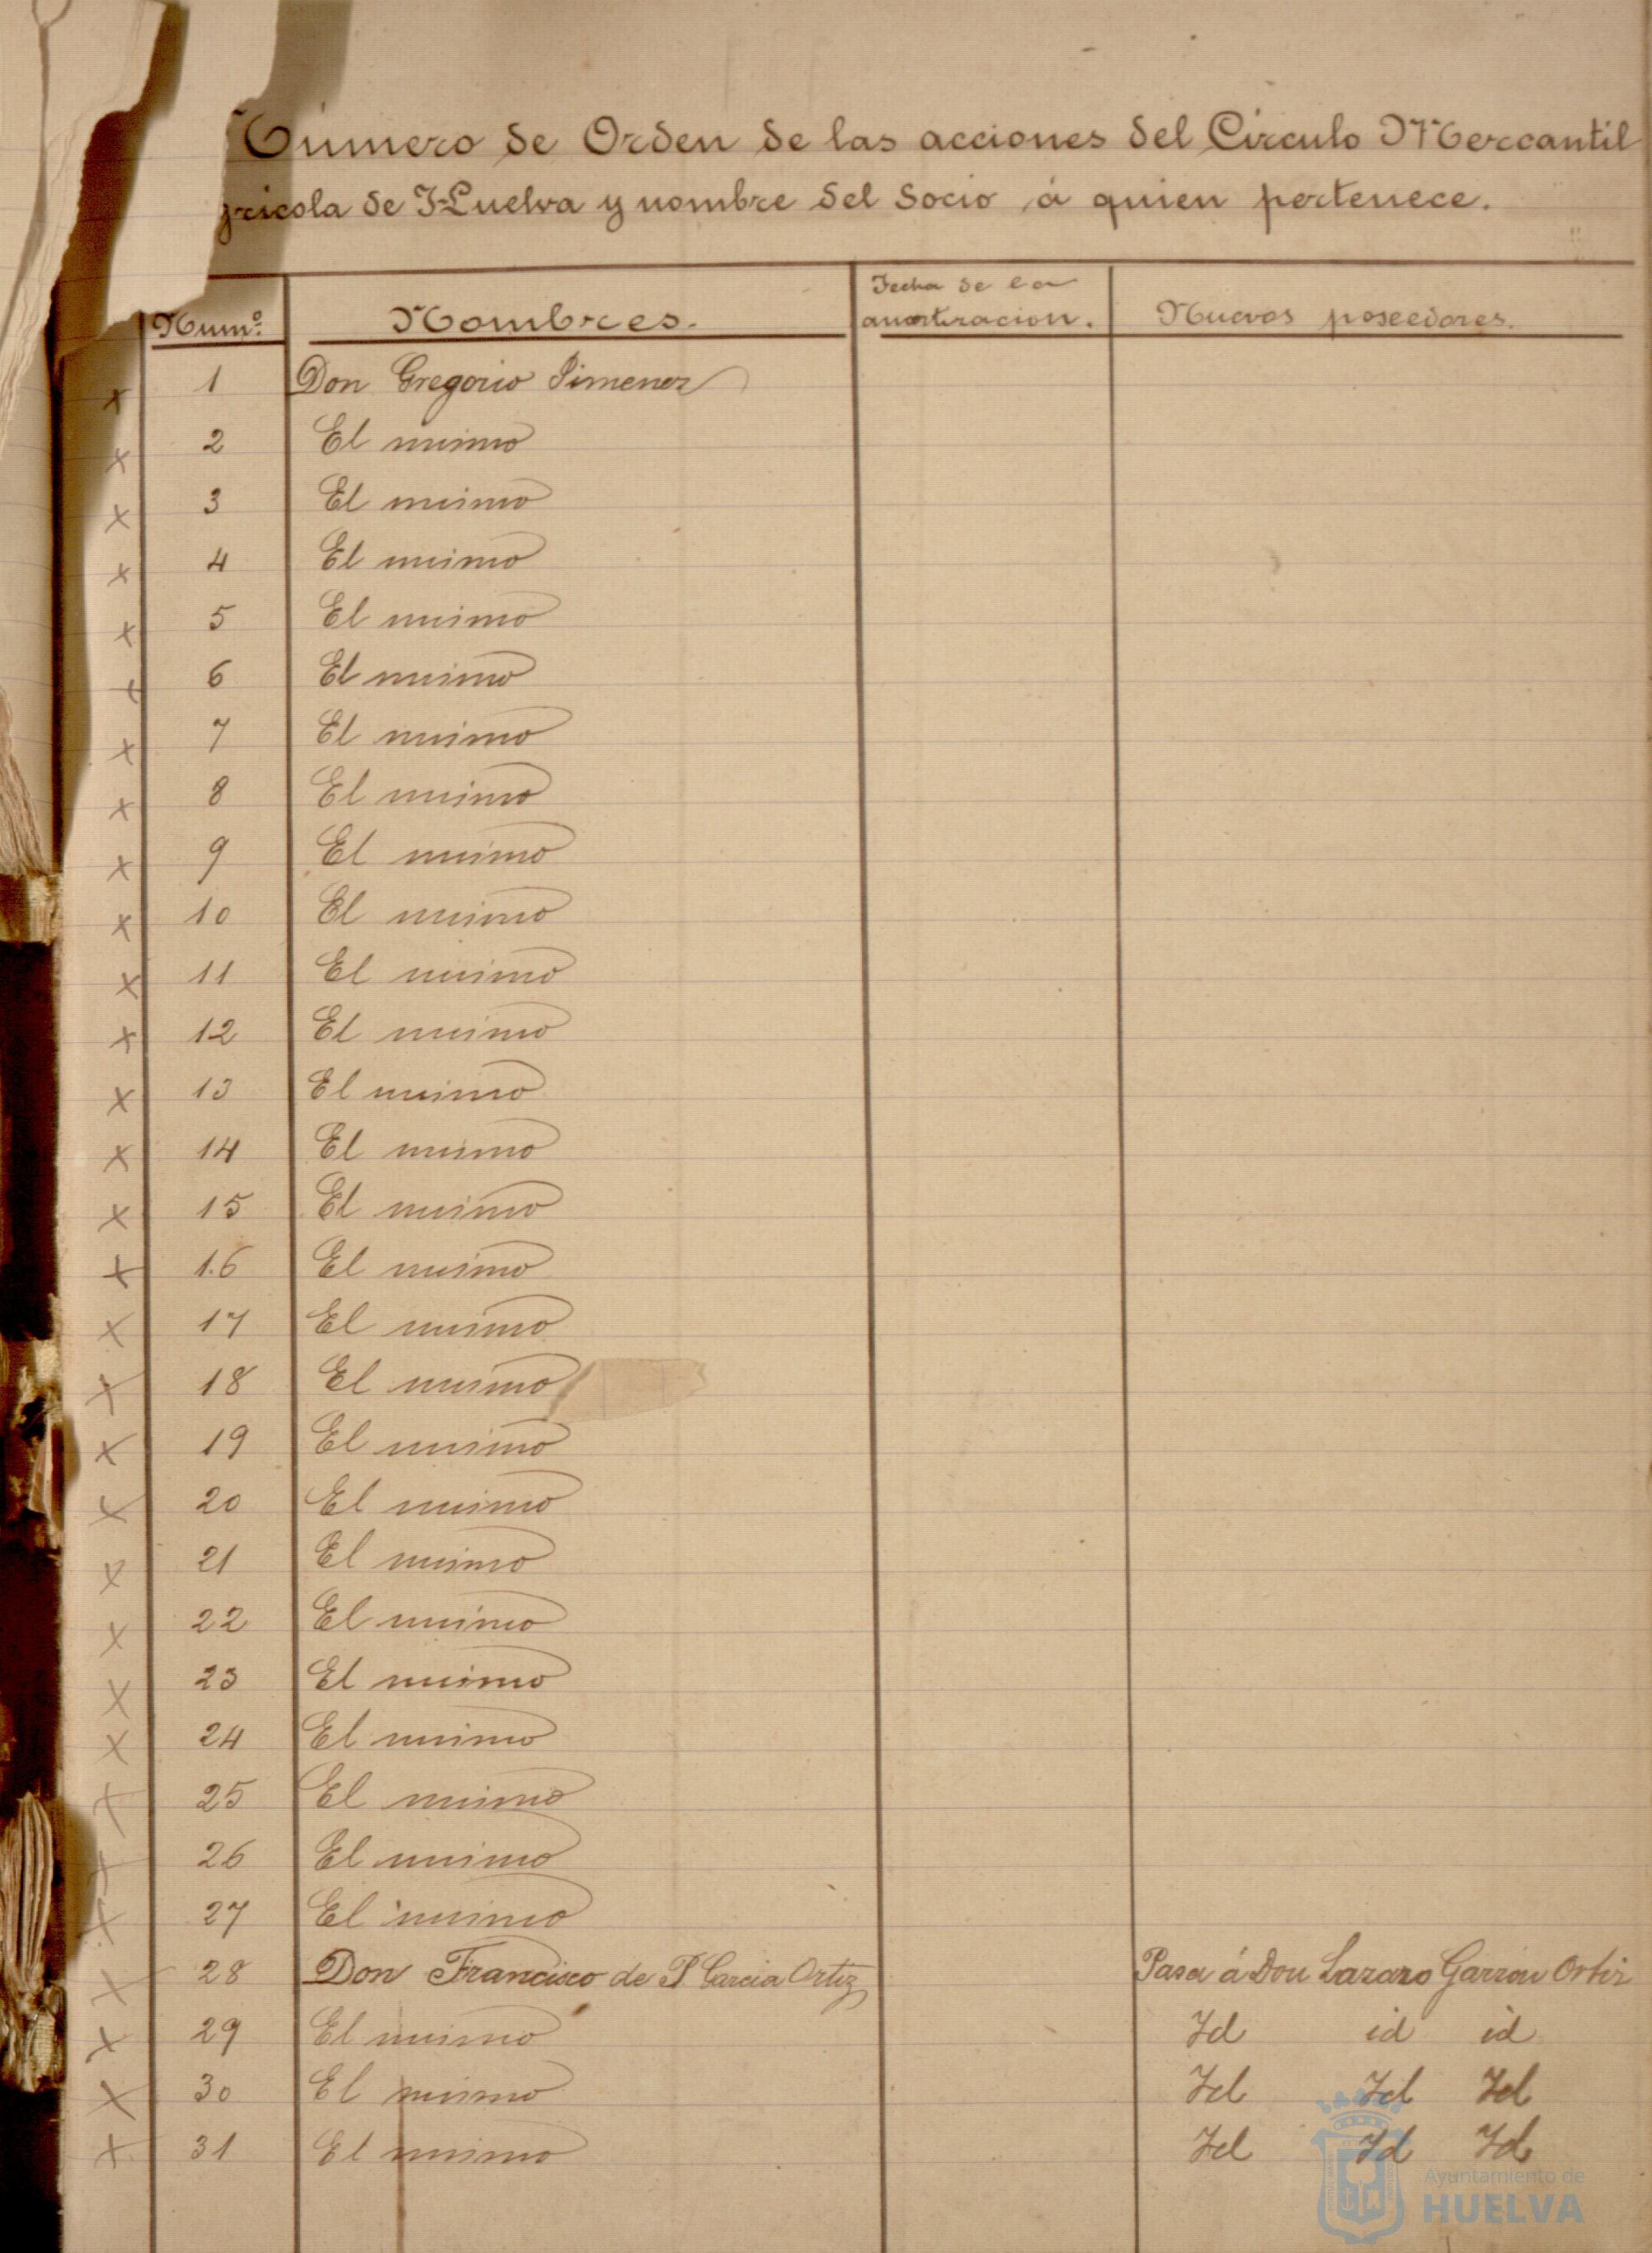 Número de Orden de las acciones del Círculo Mercantil
grícola de Huelva y nombre del Socio á quien pertenece.
Numº. Nombres. Fecha de la amortizacion. Nuevos poseedores.
x 1 Don Gregorio Jimenez
x 2 El mismo
x 3 El mismo
x 4 El mismo
x 5 El mismo
x 6 El mismo
x 7 El mismo
x 8 El mismo
x 9 El mismo
x 10 El mismo
x 11 El mismo
x 12 El mismo
x 13 El mismo
x 14 El mismo
x 15 El mismo
x 16 El mismo
x 17 El mismo
x 18 El mismo
x 19 El mismo
x 20 El mismo
x 21 El mismo
x 22 El mismo
x 23 El mismo
x 24 El mismo
x 25 El mismo
x 26 El mismo
x 27 El mismo
x 28 Don Francisco de P Garcia Ortiz Pasa á Don Lazaro Garzon Ortiz
x 29 El mismo Id id id
x 30 El mismo Id Id Id
x 31 El mismo Id Id Id
Ayuntamiento de
HUELVA